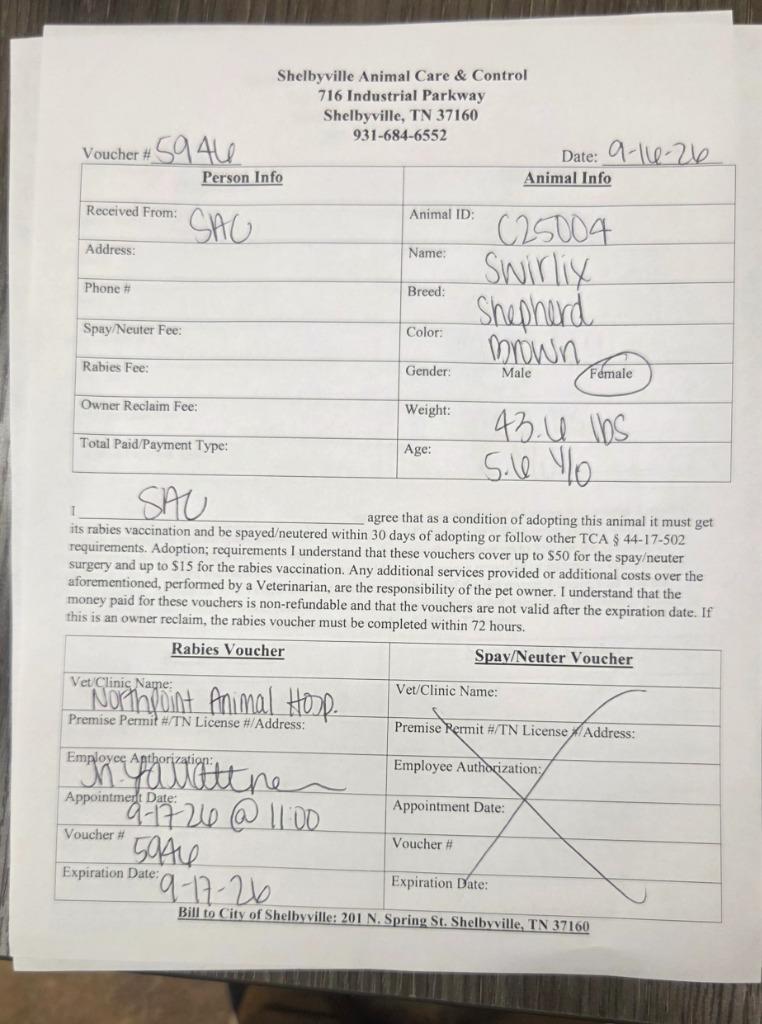 Shelbyville Animal Care & Control
716 Industrial Parkway
Shelbyville, TN 37160
931-684-6552
Voucher # 5946 Date: 9-16-26
Person Info Animal Info
Received From: SAC Animal ID: C25004
Address: Name: Swirlix
Phone # Breed: Shepherd
Spay/Neuter Fee: Color: Brown
Rabies Fee: Gender: Male Female
Owner Reclaim Fee: Weight: 43.6 lbs
Total Paid/Payment Type: Age: 5.6 y/o
I SAC agree that as a condition of adopting this animal it must get
its rabies vaccination and be spayed/neutered within 30 days of adopting or follow other TCA § 44-17-502
requirements. Adoption; requirements I understand that these vouchers cover up to $50 for the spay/neuter
surgery and up to $15 for the rabies vaccination. Any additional services provided or additional costs over the
aforementioned, performed by a Veterinarian, are the responsibility of the pet owner. I understand that the
money paid for these vouchers is non-refundable and that the vouchers are not valid after the expiration date. If
this is an owner reclaim, the rabies voucher must be completed within 72 hours.
Rabies Voucher Spay/Neuter Voucher
Vet/Clinic Name: Northpoint Animal Hosp. Vet/Clinic Name:
Premise Permit #/TN License #/Address: Premise Permit #/TN License #/Address:
Employee Authorization: Employee Authorization:
Appointment Date: 9-17-26 @ 11:00 Appointment Date:
Voucher # 5946 Voucher #
Expiration Date: 9-17-26 Expiration Date:
Bill to City of Shelbyville: 201 N. Spring St. Shelbyville, TN 37160